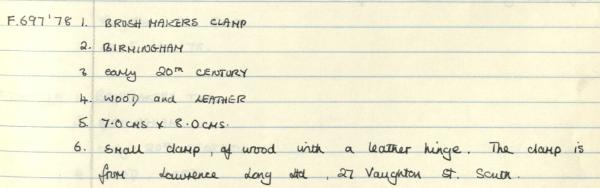 F.697'78 1. BRUSH MAKERS CLAMP
2. BIRMINGHAM
3 early 20TH CENTURY
4. WOOD and LEATHER
5. 7.0CMS X 8.0CMS.
6. Small clamp, of wood with a leather hinge. The clamp is
from Lawrence Long Ltd, 27 Vaughton St. South.